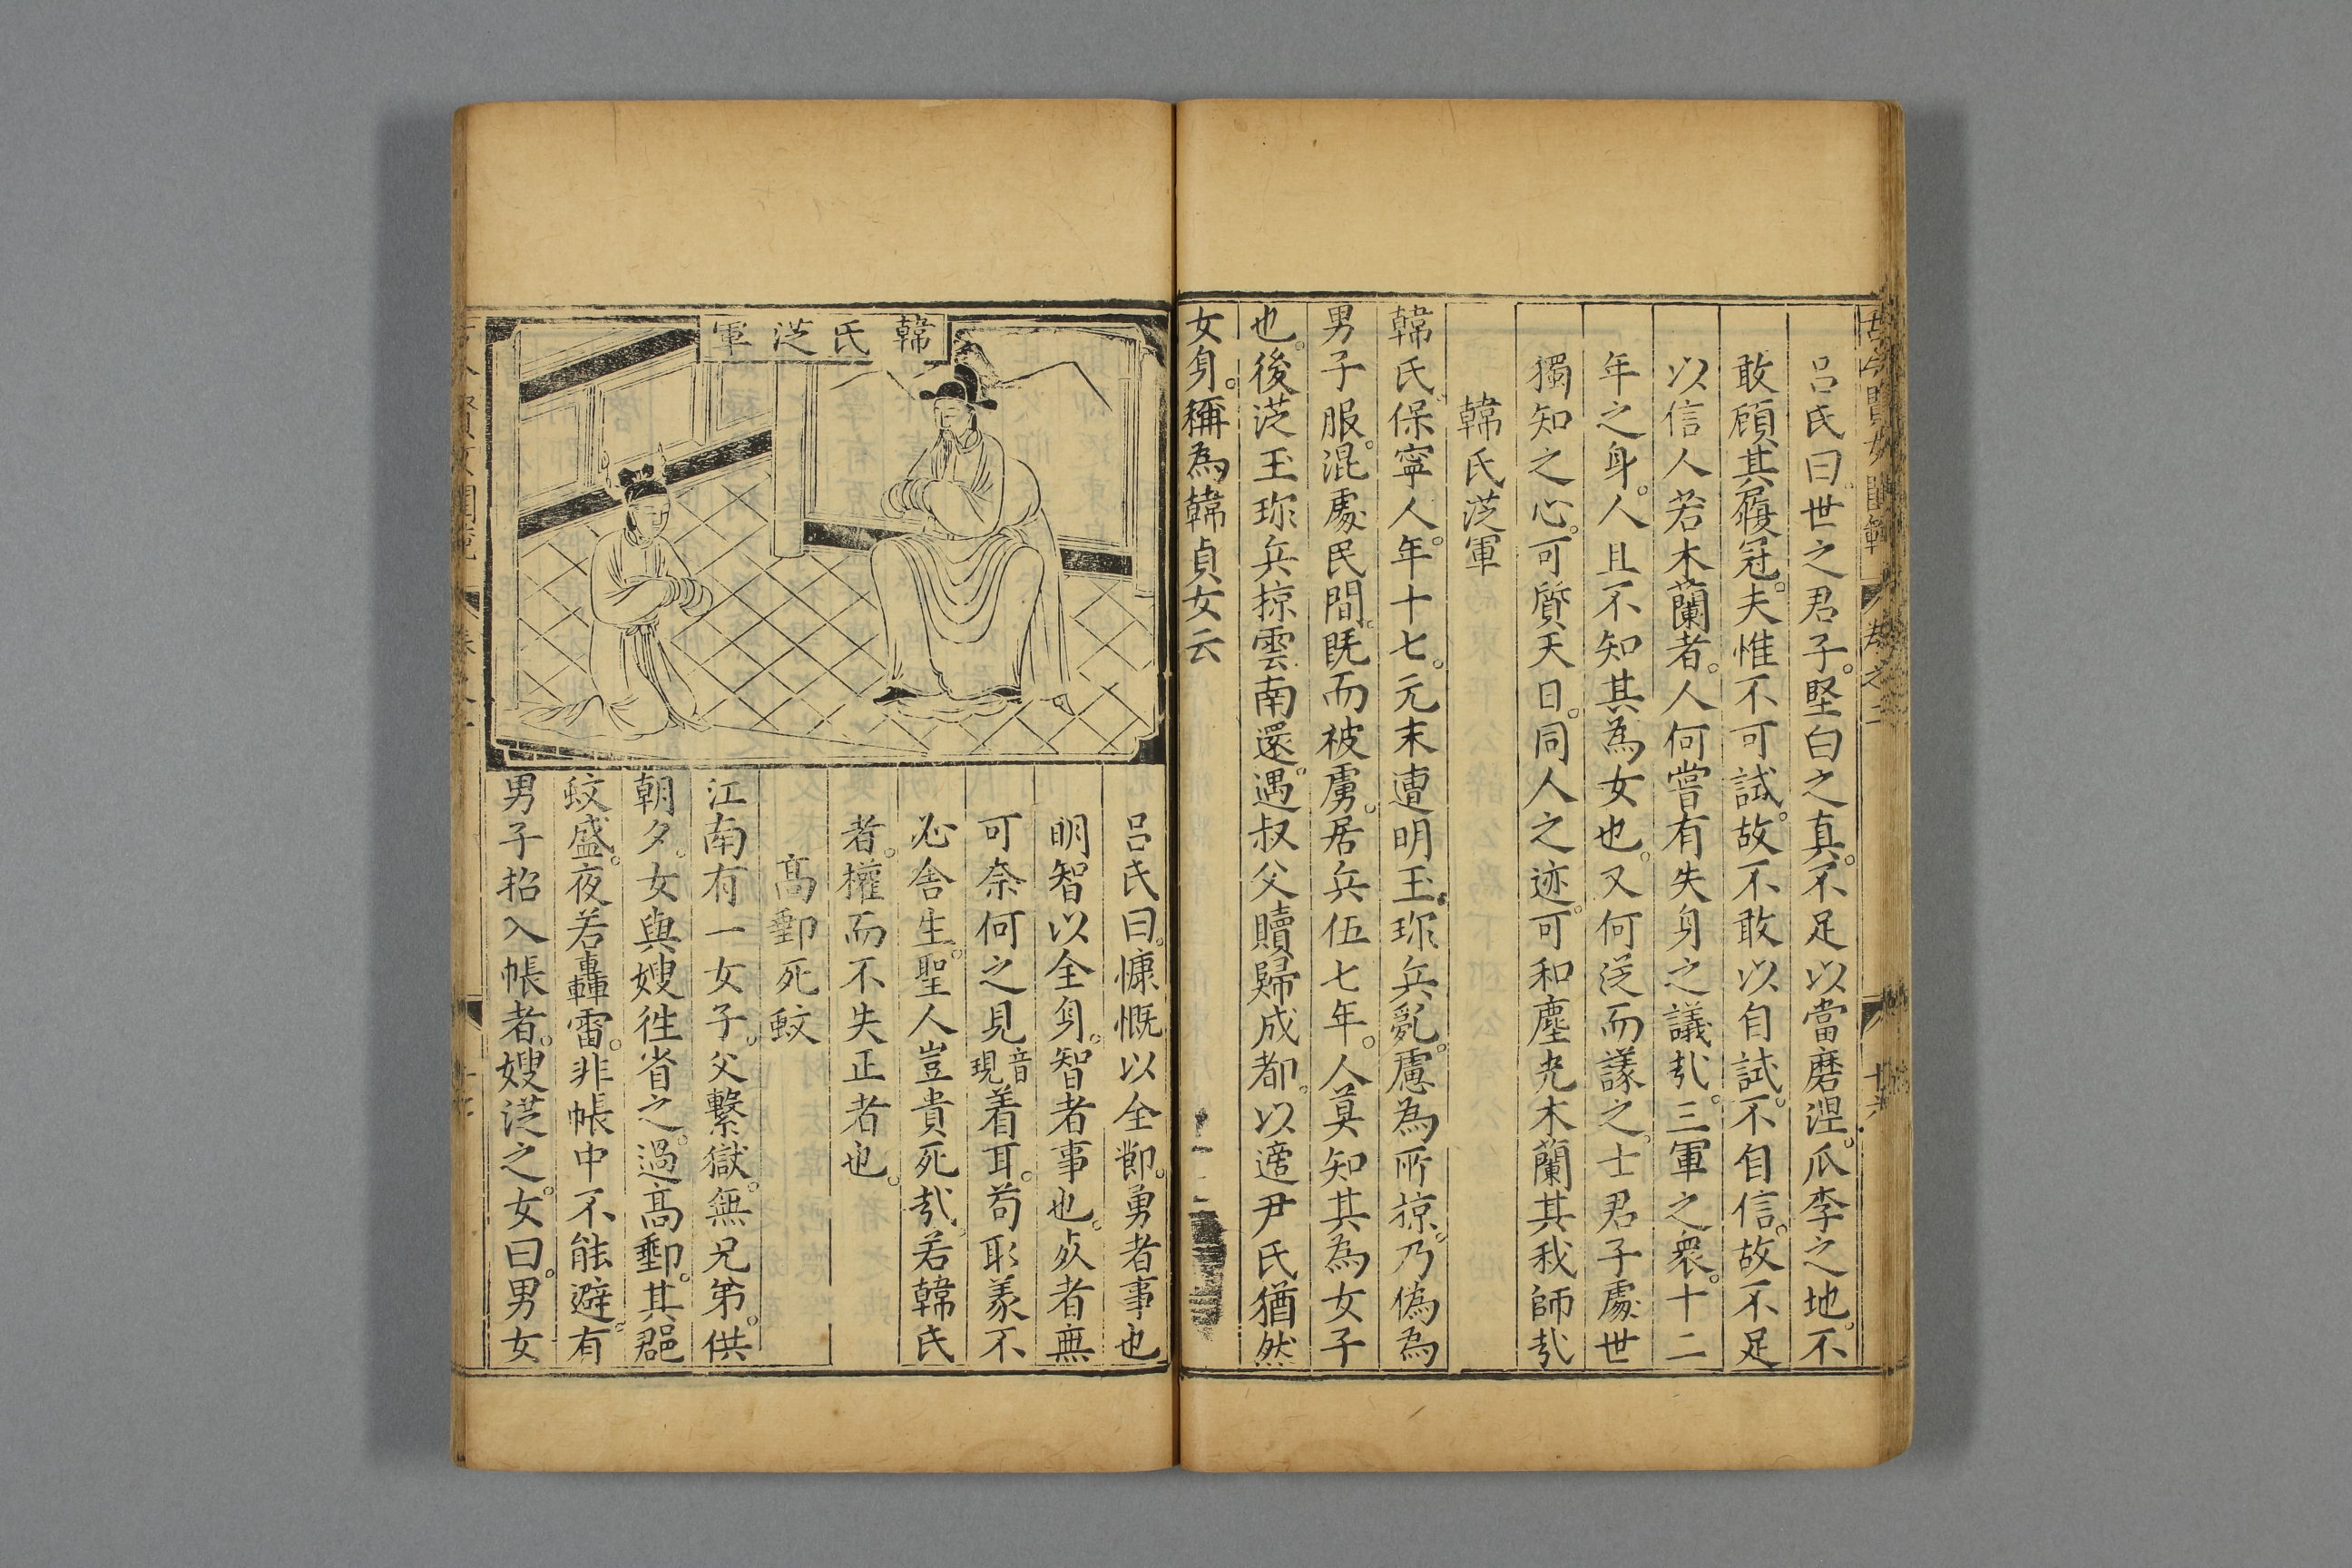 古今賢女閨範
卷之二
十六
呂氏曰世之君子。堅白之真。不足以當磨涅。瓜李之地。不
敢顧其履冠。夫惟不可試。故不敢以自試。不自信。故不足
以信人若木蘭者。人何嘗有失身之議㢤。三軍之衆。十二
年之身。人且不知其為女也。又何從而議之。士君子處世
獨知之心。可質天日。同人之迹。可和塵光木蘭其我師㢤
韓氏從軍
韓氏保寧人。年十七。元末遭明玉珎兵亂。慮為所掠。乃偽為
男子服。混處民間。既而被虜。居兵伍七年。人莫知其為女子
也。後從玉珎兵掠雲南還。遇叔父贖歸成都。以適尹氏猶然
女身。稱為韓貞女云
韓氏從軍
呂氏曰。慷慨以全節。勇者事也
明智以全身。智者事也。死者無
可奈何之見音現着耳。苟取義不
必舍生。聖人豈貴死㢤。若韓氏
者。權而不失正者也。
高郵死蚊
江南有一女子。父繫獄。無兄弟。供
朝夕。女與嫂徃省之。過高郵。其郡
蚊盛。夜若轟雷。非帳中不能避。有
男子招入帳者。嫂從之。女曰。男女